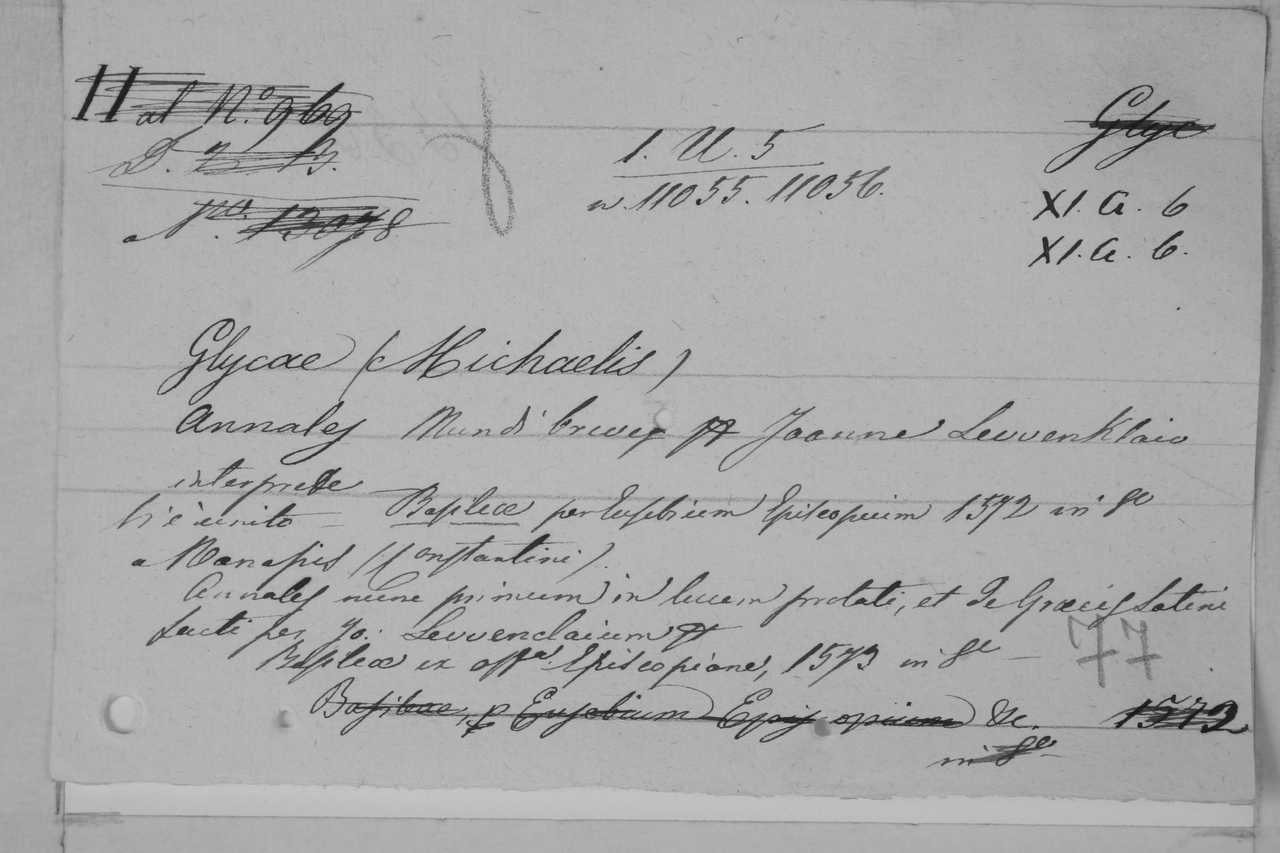 al N.º 969
D.
N.ro 13078
1. U. 5
n. 11055. 11056.
Glyc
XI. a. 6
XI. a. 6.
Glycae (Michaelis)
Annales Mundi breves Joanne Levvenklaio
interprete
Basileæ per Eusebium Episcopium 1572 in 8º
Vi è unito
a Manassis (Constantini).
Annales nunc primum in lucem prolati, et de Græcis Latini
facti per Jo. Levvenclaium
Basileæ ex offª. Episcopiana, 1573 in 8º
77
Basileae, p Eusebium Episcopium &c. 1572
in 8º